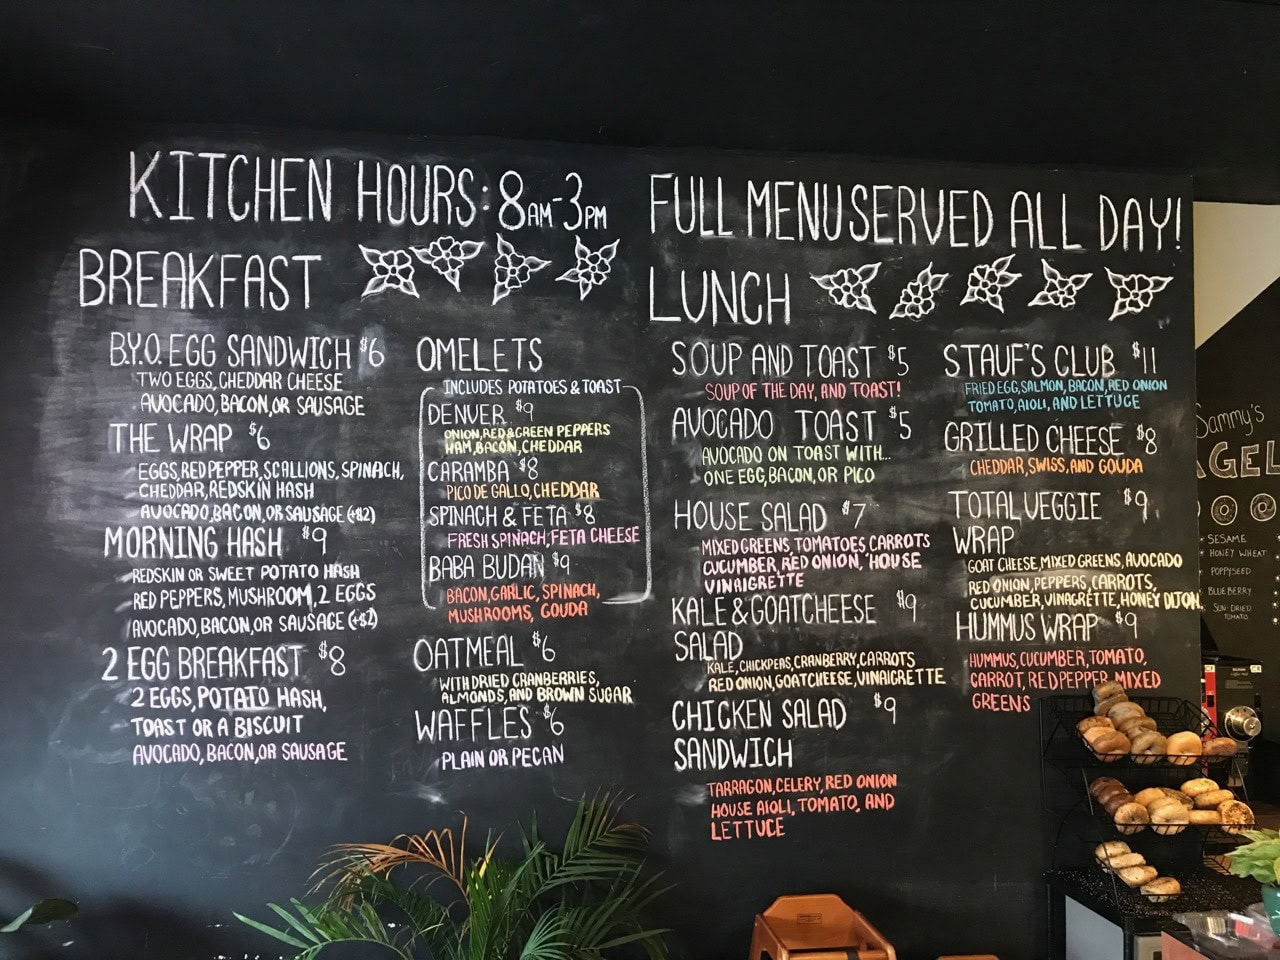 KITCHEN HOURS: 8AM-3PM
FULL MENU SERVED ALL DAY!
BREAKFAST
B.Y.O. EGG SANDWICH $6
TWO EGGS, CHEDDAR CHEESE
AVOCADO, BACON, OR SAUSAGE
THE WRAP $6
EGGS, RED PEPPER, SCALLIONS, SPINACH,
CHEDDAR, REDSKIN HASH
AVOCADO, BACON, OR SAUSAGE (+$2)
MORNING HASH $9
REDSKIN OR SWEET POTATO HASH
RED PEPPERS, MUSHROOM, 2 EGGS
AVOCADO, BACON, OR SAUSAGE (+$2)
2 EGG BREAKFAST $8
2 EGGS, POTATO HASH,
TOAST OR A BISCUIT
AVOCADO, BACON, OR SAUSAGE
OMELETS
INCLUDES POTATOES & TOAST
DENVER $9
ONION, RED & GREEN PEPPERS
HAM, BACON, CHEDDAR
CARAMBA $8
PICO DE GALLO, CHEDDAR
SPINACH & FETA $8
FRESH SPINACH, FETA CHEESE
BABA BUDAN $9
BACON, GARLIC, SPINACH,
MUSHROOMS, GOUDA
OATMEAL $6
WITH DRIED CRANBERRIES,
ALMONDS, AND BROWN SUGAR
WAFFLES $6
PLAIN OR PECAN
LUNCH
SOUP AND TOAST $5
SOUP OF THE DAY, AND TOAST!
AVOCADO TOAST $5
AVOCADO ON TOAST WITH...
ONE EGG, BACON, OR PICO
HOUSE SALAD $7
MIXED GREENS, TOMATOES, CARROTS
CUCUMBER, RED ONION, HOUSE
VINAIGRETTE
KALE & GOATCHEESE $9
SALAD
KALE, CHICKPEAS, CRANBERRY, CARROTS
RED ONION, GOATCHEESE, VINAIGRETTE
CHICKEN SALAD $9
SANDWICH
TARRAGON, CELERY, RED ONION
HOUSE AIOLI, TOMATO, AND
LETTUCE
STAUF'S CLUB $11
FRIED EGG, SALMON, BACON, RED ONION
TOMATO, AIOLI, AND LETTUCE
GRILLED CHEESE $8
CHEDDAR, SWISS, AND GOUDA
TOTAL VEGGIE $9
WRAP
GOAT CHEESE, MIXED GREENS, AVOCADO
RED ONION, PEPPERS, CARROTS,
CUCUMBER, VINAGRETTE, HONEY DIJON
HUMMUS WRAP $9
HUMMUS, CUCUMBER, TOMATO,
CARROT, RED PEPPER, MIXED
GREENS
Sammy's
AGEL
SESAME
HONEY WHEAT
POPPYSEED
BLUEBERRY
SUN-DRIED
TOMATO